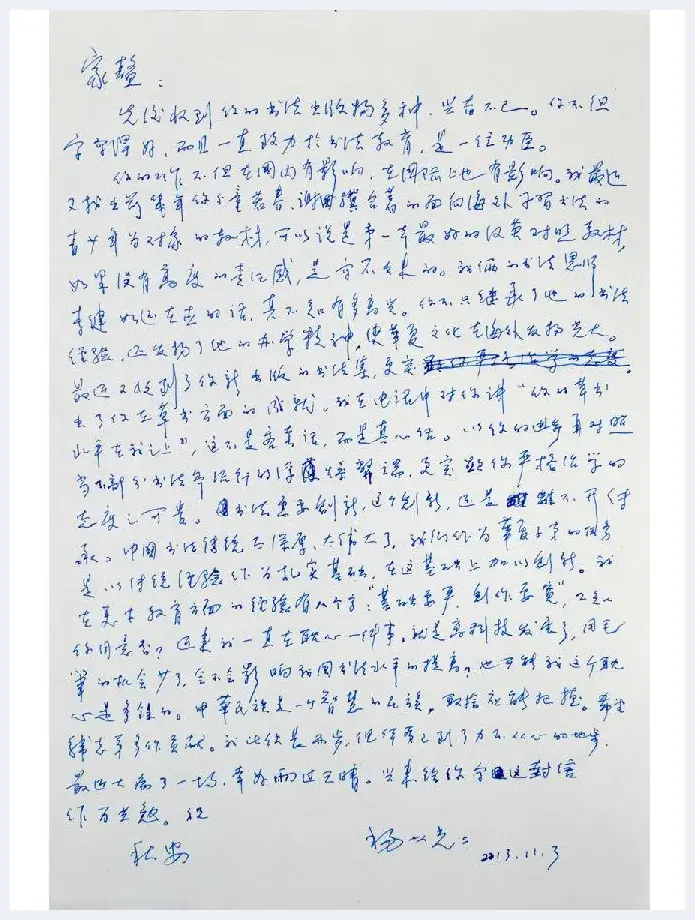 家鳌：
先后收到你的书法出版物多种，兴奋不已。你不但
字写得好，而且一直致力于书法教育，是一位功臣。
你的工作不但在国内有影响，在国际上也有影响。我最近
又拾出前年你个童若春、谢田骥合着的面向海外学习书法的
青少年为对象的教材，可以说是第一本最好的汉英对照教材，
如果没有高度的责任感，是写不出来的。我俩的书法恩师
李健如还在世的话，真不知有多高兴。你不只继承了他的书法
经验，还发扬了他的办学精神，使华夏文化在海外发扬光大。
最近又收到了你新出版的书法集，更实
出了你在草书方面的成就。我在电话中对你讲“你的草书
水平在我之上”，这不是客套话，而是真心话。以你的进步再对照
当下部分书法界流行的浮，更实你严格治学的
态度之可贵。书法要创新，这个创新，还是离不开传
承。中国书法传统太深厚、太伟大了，我们作为华夏子孙的任务
是以传统经验作为扎实基础，在这基础上加以创新。我
在美术教育方面的经验有八个字：“基础要严，创作要宽”，不知
你同意否？近来我一直在耽心一件事。就是高科技发展了，用毛
笔的机会少了，会不会影响我国书法水平的提高？也可能我这个耽
心是多余的。中华民族是一个智慧的民族，取捨自能把握。希望
辅志草多作贡献。我比你长两岁，但体力已到了力不从心的地步，
最近大病了一场，幸好雨过天晴。兴来给你写这封信
作为共勉。祝
秋安
杨以光上
2013.11.3